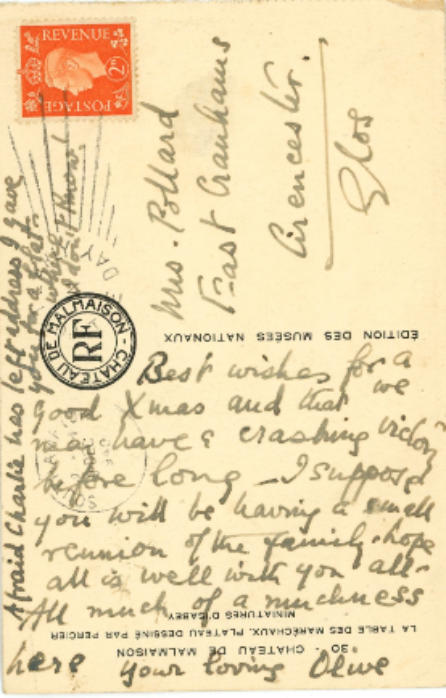 REVENUE
POSTAGE
2D
Mrs. Pollard
East Cranhams
Cirencester.
Glos
CHATEAU DE MALMAISON
RF
ÉDITION DES MUSÉES NATIONAUX
Best wishes for a
good Xmas and that we
may have a crashing victory
before long - I suppose
you will be having a small
reunion of the family - hope
all is well with you all -
All much of a muchness
here your loving Olive
Afraid Charlie has left address I gave
you for a
I don't know!
30 - CHATEAU DE MALMAISON
LA TABLE DES MARÉCHAUX. PLATEAU DESSINÉ PAR PERCIER
MINIATURES D'ISABEY
DAY